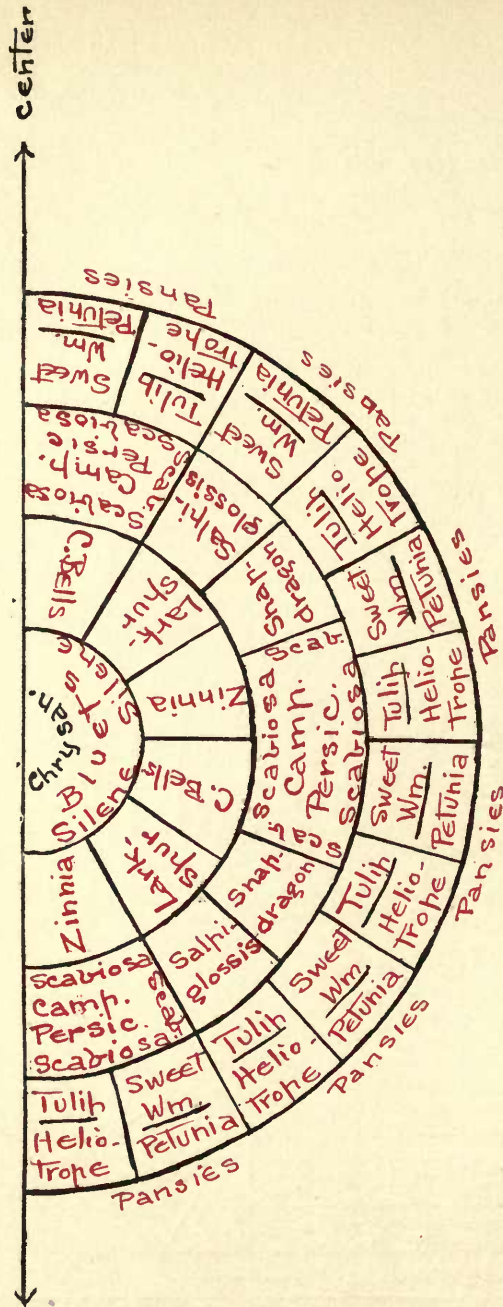 center
Chrysan.
Bluets
Silene
Silene
C. Bells
Lark-
spur
Zinnia
C. Bells
Lark-
spur
Zinnia
Scabiosa
Camp.
Persic
Scabiosa
Scab.
Salpi-
glossis
Snap-
dragon
Scab.
Scabiosa
Camp.
Persic.
Scabiosa
Scab.
Snap-
dragon
Salpi-
glossis
Scabiosa
Camp.
Persic.
Scabiosa
Scab.
Sweet
Wm.
Petunia
Tulip
Helio-
trope
Sweet
Wm.
Petunia
Tulip
Helio
trope
Sweet
Wm.
Petunia
Tulip
Helio-
trope
Sweet
Wm.
Petunia
Tulip
Helio-
Trope
Sweet
Wm.
Petunia
Tulip
Helio-
trope
Sweet
Wm.
Petunia
Tulip
Helio-
trope
Pansies
Pansies
Pansies
Pansies
Pansies
Pansies